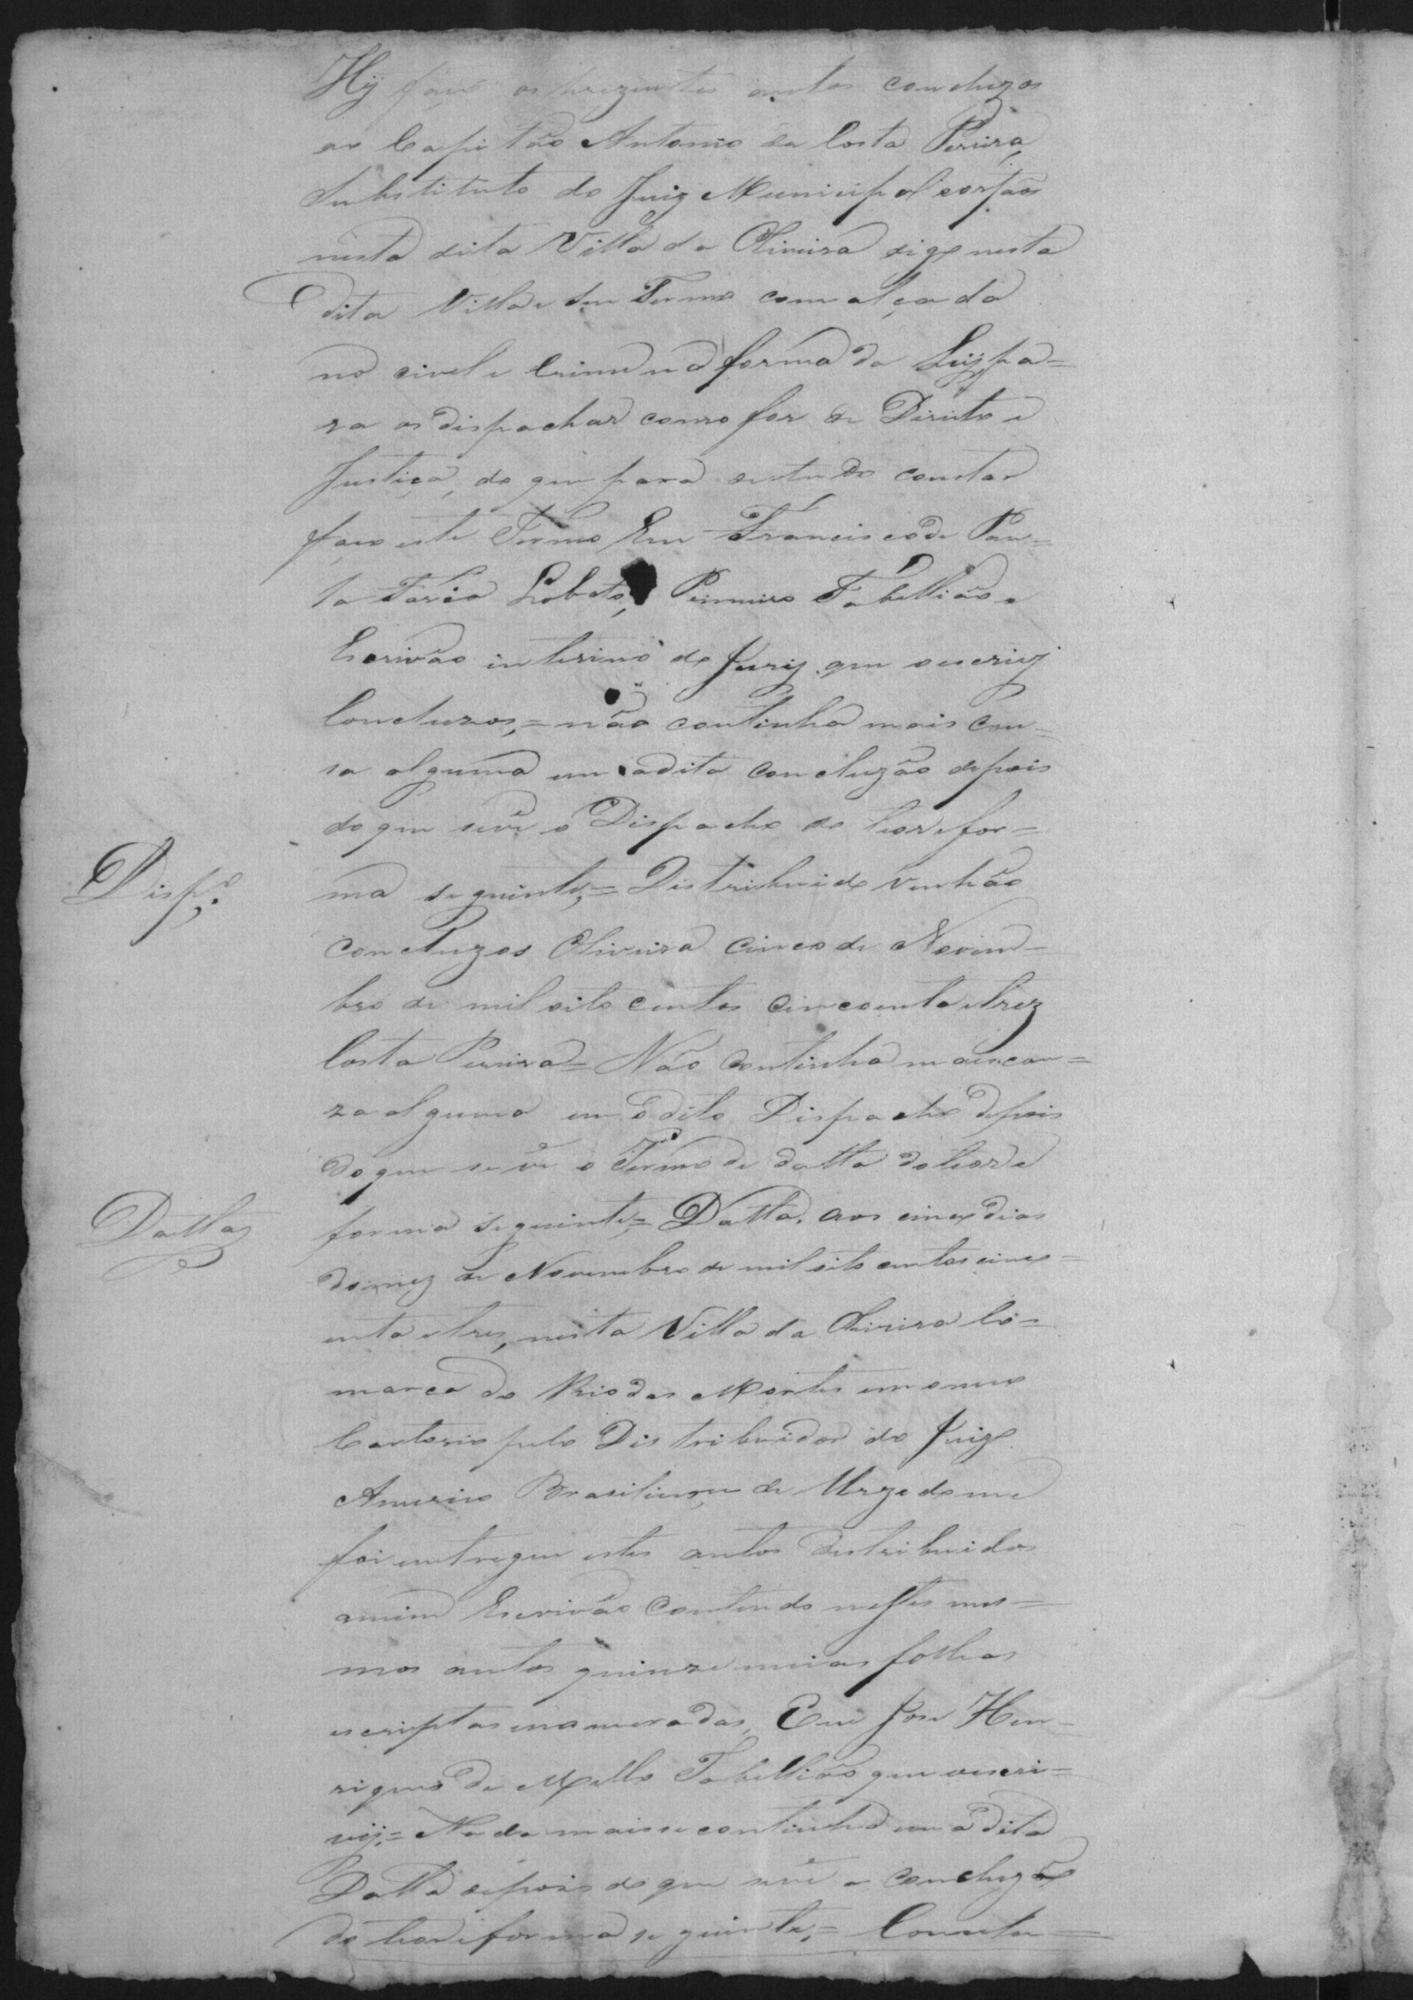 Hij faço os prezentes autos concluzos
ao Capitão Antonio da Costa Pereira,
Substituto do Juiz Municipal
nesta dita Villa da Oliveira digo nesta
dita Villa e seu Termo com alçada
no civel e Crime na forma da Leij pa=
ra os dispachar como for de Direito e
Justiça, do que para de tudo constar
faço este Termo Eu Francisco de Pau=
la Faria Lobato, Primeiro Tabellião e
Escrivão interino do Jury que escrivij
Concluzos,= não continha mais cou=
sa alguma em adita concluzão depois
do que se vê o Dispacho do theor e for=
Disp.º
ma seguinte,= Distribuido venhão
concluzos Oliveira cinco de Novem=
bro de mil oito centos cincoenta e trez
Costa Pereira= Não continha mais cou=
za alguma em o dito Dispacho depois
do que se vê o Termo de datta do theor e
Datta
forma seguinte,= Datta. aos cinco dias
do mez de Novembro de mil oito centos cinco=
enta e tres, nesta Villa da Oliveira Co=
marca do Rio das Mortes em o meu
Cartorio pelo Distribuidor do Juizo
Americo Brasiliense de Urzedo me
foi entregue estes autos destribuidos
amim Escrivão contendo nestes mes=
mos autos quinze meias folhas
escriptas e nomeradas, Eu José Hen=
riques de Mello Tabellião que escri=
vij,= Nada mais se continha em a dita
Datta depois do que se vê a concluzão
do theor e forma seguinte,= Conclu=